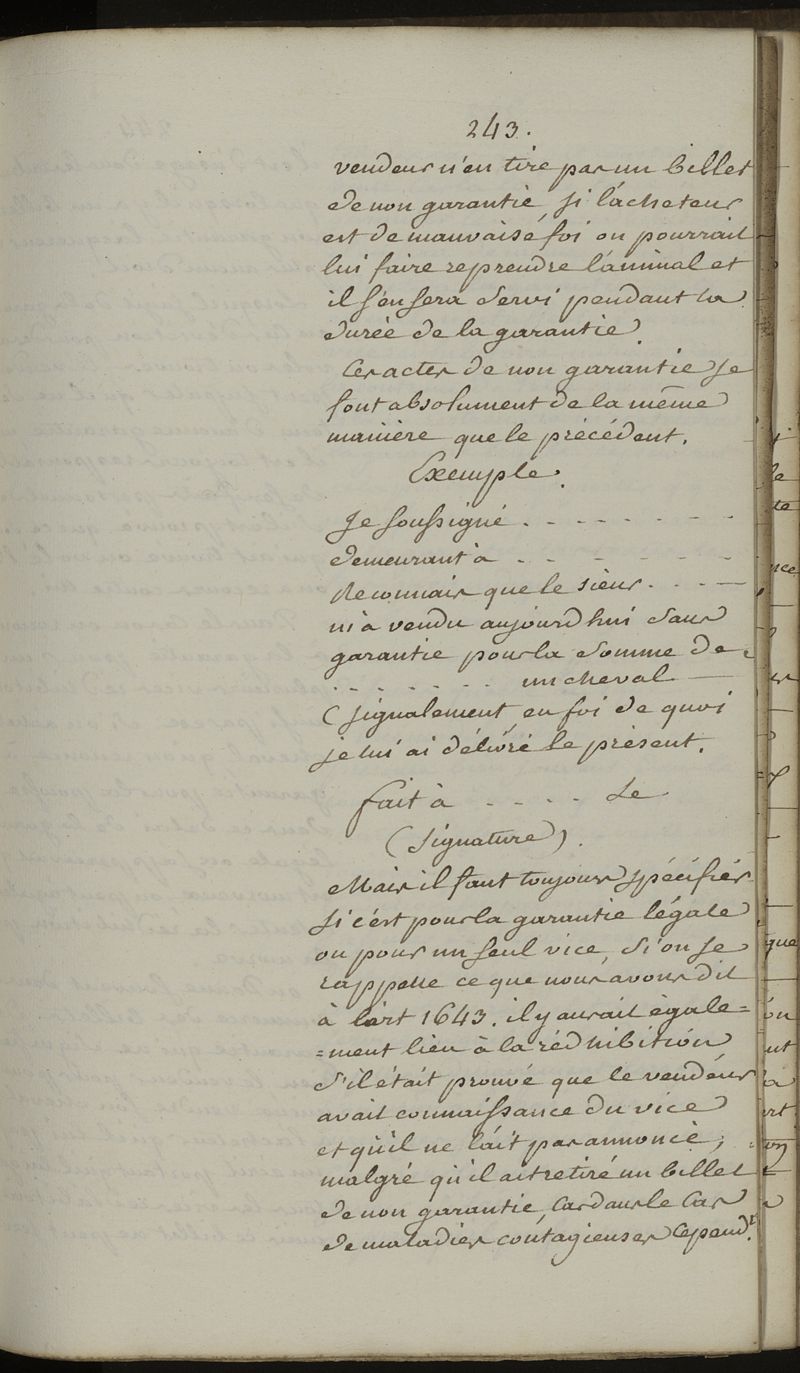 243.
vendeur n'en tire pas un billet
de non garantie, si l'acheteur
est de mauvaise foi on pourrait
lui faire reprendre l'animal et
il s'en sera servi pendant la
durée de la garantie.
Ces actes de non garantie se
font absolument de la même
manière que le précédent.
Exemple.
Je soussigné . - - - - - - -
demeurant à - - - - - - -
Reconnais que le sieur . - - -
m'a vendu aujourd'hui sans
garantie pour la somme de -
- - - - - - un cheval -
(signalement en foi de quoi
je lui ai délivré le présent.
fait à - - - - Le
(Signature).
Mais il faut toujours spécifier
si c'est pour la garantie légale
ou pour un seul vice, si on se
rappelle ce que nous avons dit
à l'art 1643. il y aurait égale=
=ment lieu à la rédhibition
s'il était prouvé que le vendeur
avait connaissance du vice
et qu'il ne l'ait pas annoncé,
malgré qu'il ait retiré un billet
de non garantie, Car dans le Cas
de maladies contagieuses Cepend.t